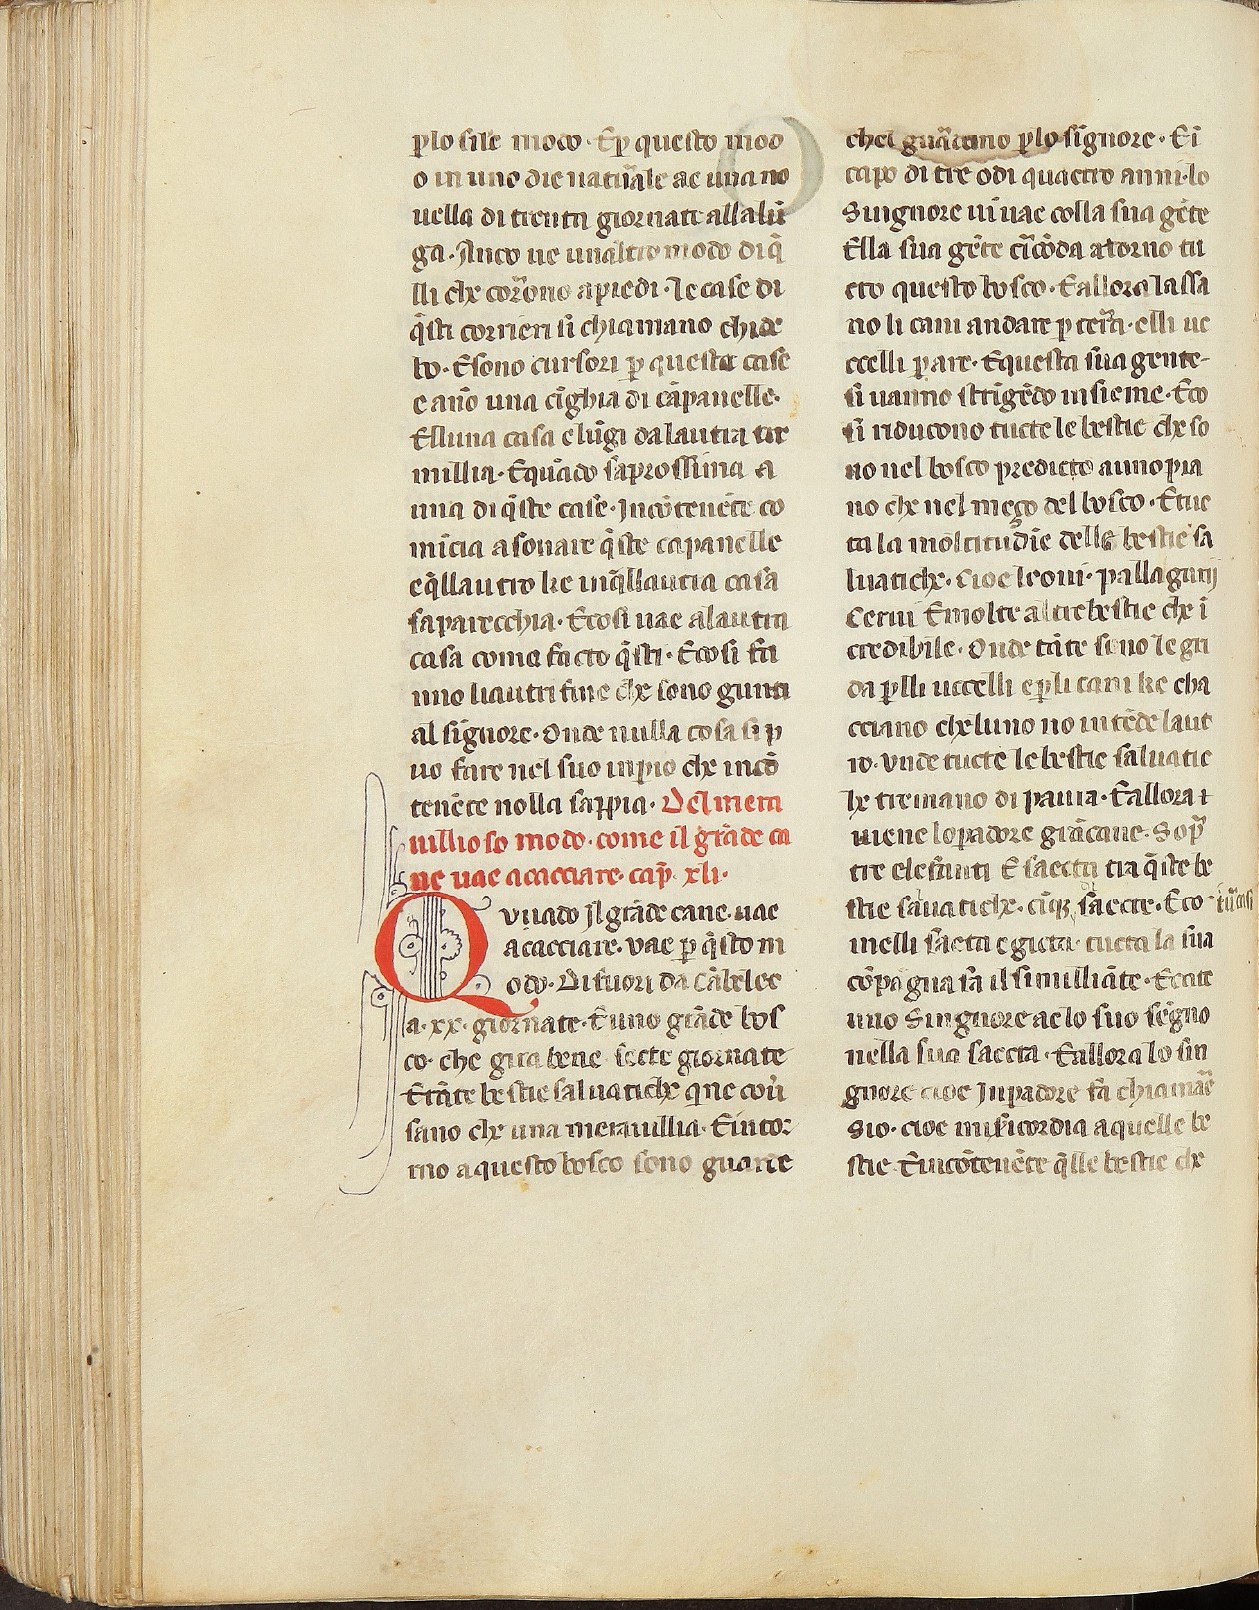 ꝑlo sile modo · Eꝑ questo mod
o in uno die naturale ae una no
uella di trenta giornate allalũ
ga · Anco ue unaltro modo di q̃
lli che corrono apiedi · le case di
q̃sti corrieri si chiamano chide
bo · Esono cursori ꝑ questa case
e ano una cĩghia di cãpanelle ·
Elluna casa elũgi dalautra tre
millia · Equãdo saprossima a
una di q̃ste case · Incõtenẽte co
mincia asonare q̃ste capanelle
eq̃llautro ke inq̃llautra casa
saparecchia · Ecosi uae alautra
casa coma facto q̃sti · Ecosi fa
nno liautri fine che sono gunti
al signore · Onde nulla cosa si p
uo fare nel suo inꝑio che incõ
tenẽte nolla sappia · Del mera
uillioso modo · come il grãde ca
ne uae acacciare · cap̃ · xli ·
Quãdo Il grãde cane · uae
acacciare · vae ꝑ q̃sto m
odo · Di fuori da cãbelec
a · xx · giornate · E uno grãde bos
co · che gira bene sette giornate
Etãte bestie saluatiche que cõu̾
sano che una merauillia · Eintor
rno aquesto bosco sono guarie
chel guardano ꝑlo signore · Ei
capo di tre odi quactro anni · lo
Singnore ui uae colla sua gẽte
Ella sua gẽte circõda atorno tu
cto questo bosco · Eallora lassa
no li cani andare ꝑ terra · elli uc
ccelli ꝑ are · Equesta sua gente
si uanno strigẽdo insieme · Eco
si riducono tucte le bestie che so
no nel bosco predicto anno pia
no che nel meço del bosco · Etue
ta la moltitudĩe delle bestie sa
luatiche · Cioe leoni · pallagruij
Cerui Emolte altre bestie che ĩ
credibile · Onde tãte sono le gri
da ꝑlli uccelli eꝑli cani ke cha
cciano che luno no intẽde laut
ro · Vnde tucte le bestie saluatic
he tremano di paura · Eallora
uiene loꝑadore grãcane · Sop̃
tre elefanti E saecta tra q̃ste be
stie saluatiche · cĩq; saecte · Eco
inelli saeta egieta tucta la sua
cõpagna fa il simulliãte · Ecate
uno Singnore ae lo suo sẽgno
nella sua saecta · Eallora lo sin
gnore cioe Inpadore fa chiamare
Sio · cioe misericordia aquelle be
stie Eincõtenẽte q̃lle bestie che